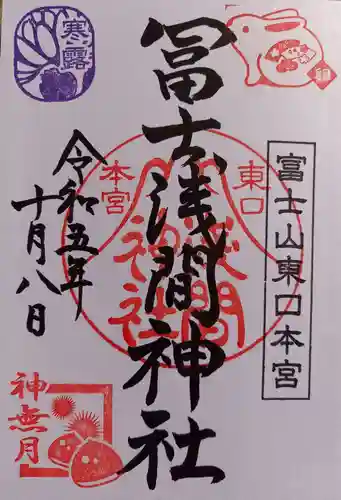 富士山東口本宮
東口
本宮
冨士浅間神社
浅間
神社
令和五年
十月八日
寒露
卯
神無月